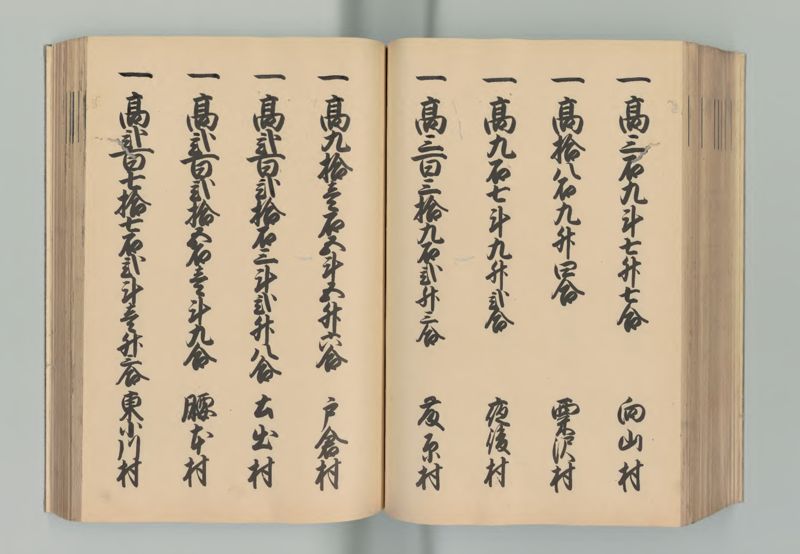 一 高三石九斗七升七合 向山村
一 高拾八石九升四合 粟沢村
一 高九石七斗九升弐合 夜後村
一 高三百三拾九石弐升三合 藤原村
一 高九拾壱石五斗五升六合 戸倉村
一 高弐百弐拾石三斗弐升八合 土出村
一 高弐百弐拾五石壱斗九合 腰本村
一 高弐百七拾七石弐斗壱升六合 東小川村